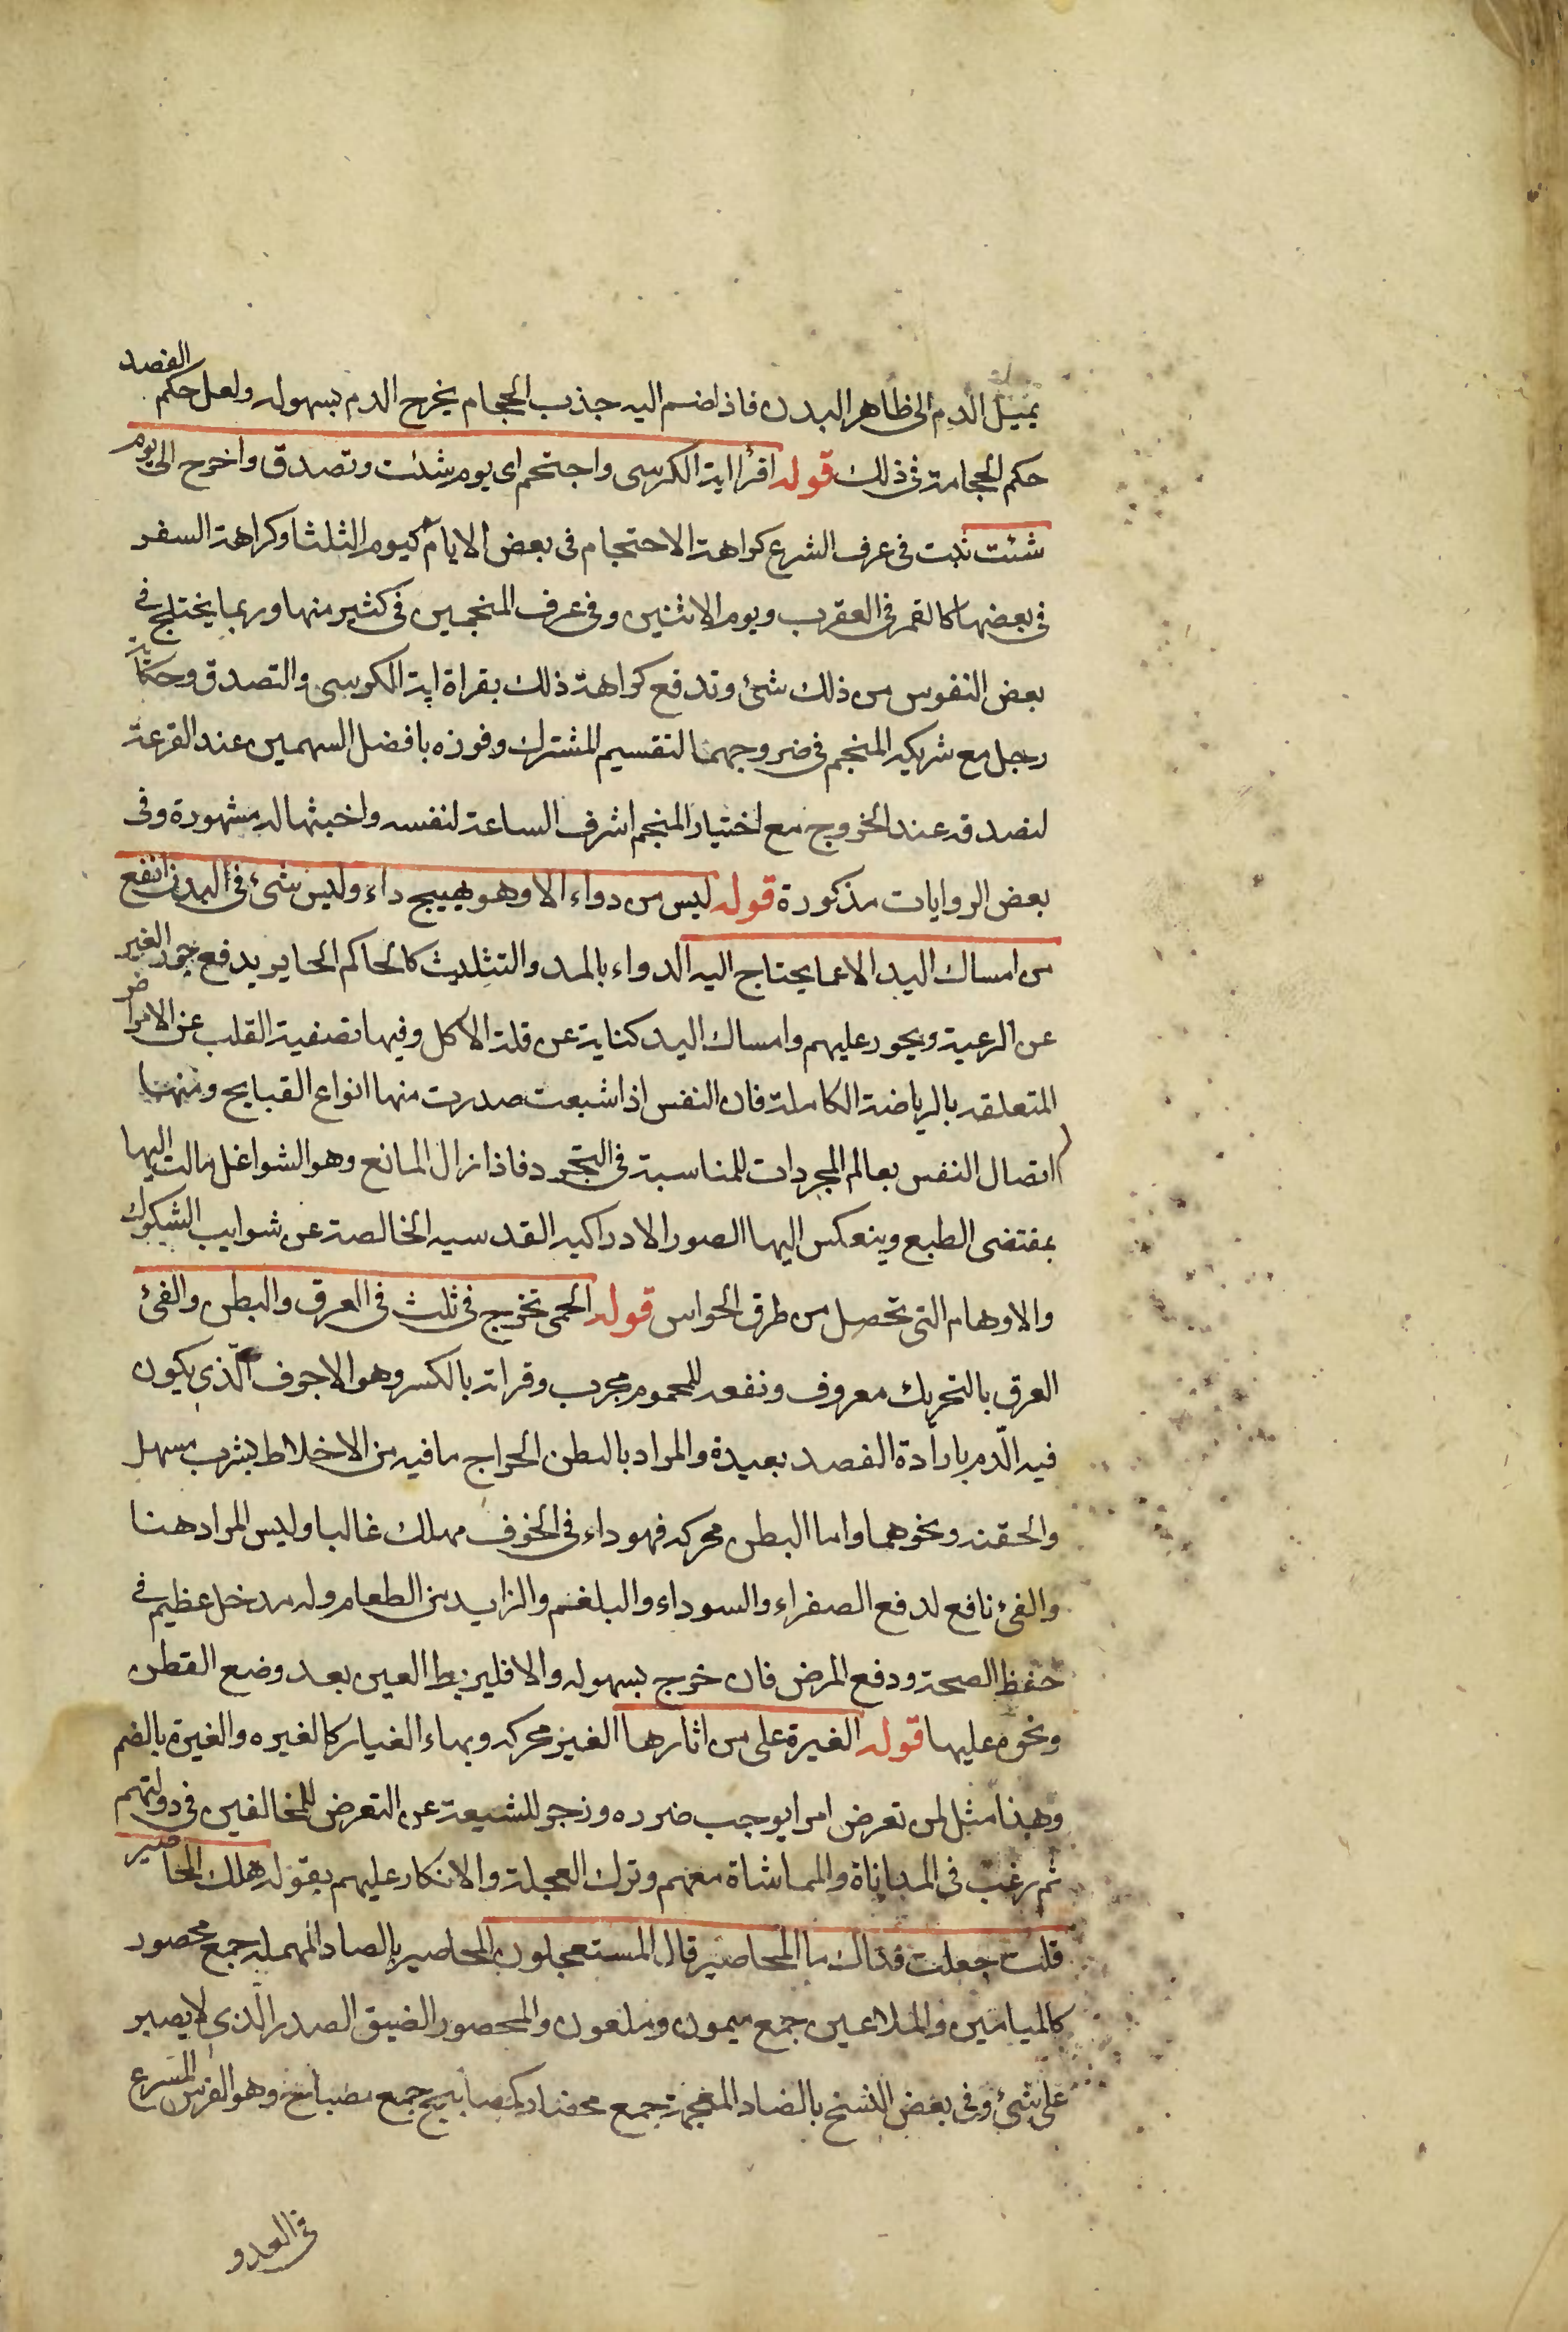 يميل الدم الى ظاهر البدن فاذا ضم اليه جذب الحجام يخرج الدم بسهوله ولعل حكم الفصد
حكم الحجامة فى ذلك قوله اقرأ اية الكرسى واحتجم اى يوم شئت وتصدق واخرج اى يوم
شئت ثبت فى عرف الشرع كراهة الاحتجام فى بعض الايام كيوم الثلثا وكراهة السفر
فى بعضها كالقمر فى العقرب ويوم الاثنين وفى عرف المنجمين فى كثير منها وربما يختلج فى
بعض النفوس من ذلك شئ وتدفع كراهة ذلك بقراة اية الكرسى والتصدق وحكاية
رجل مع شريكه المنجم فى خروجهما لتقسيم المشترك وفوزه بافضل السهمين عند القرعة
لتصدقه عند الخروج مع اختيار المنجم اشرف الساعة لنفسه واخبثها له مشهورة وفى
بعض الروايات مذكورة قوله ليس من دواء الا وهو يهيج داء وليس شئ فى البدن انفع
من امساك اليد الا عما يحتاج اليه الدواء بالمد والتثليث كالحاكم الجاير يدفع جور الغير
عن الرعية ويجور عليهم وامساك اليد كناية عن قلة الاكل وفيها تصفية القلب عن الامراض
المتعلقه بالرياضة الكاملة فان النفس اذا شبعت صدرت منها انواع القبايح ومنها
اتصال النفس بعالم المجردات للمناسبة فى التجرد فاذا زال المانع وهو الشواغل مالت اليها
بمقتضى الطبع وينعكس اليها الصور الادراكيه القدسيه الخالصة عن شوايب الشكوك
والاوهام التى تحصل من طرق الحواس قوله الحمى تخرج فى ثلث فى العرق والبطن والقئ
العرق بالتحريك معروف ونفعه للمحموم مجرب وقراته بالكسر وهو الاجوف الّذى يكون
فيه الّدم بارادة الفصد بعيدة والمراد بالبطن اخراج ما فيه من الاخلاط بشرب مسهل
والحقنه ونحوهما واما البطن محركه فهو داء فى الجوف مهلك غالبا وليس المراد هنا
والقئ نافع لدفع الصفراء والسوداء والبلغم والزايد من الطعام وله مدخل عظيم فى
حفظ الصحة ودفع المرض فان خرج بسهوله والا فليربط العين بعد وضع القطن
ونحوه عليها قوله الغبرة على من اثارها الغبر محركه وبهاء الغبار كالغبره والغبرة بالضم
وهذا مثل لمن تعرض امرا يوجب ضرره وزجر للشيعة عن التعرض للمخالفين فى دولتهم
ثم رغب فى المداناة والمماشاة معهم وترك العجلة والانكار عليهم بقوله هلك المحاصير
قلت جعلت فداك ما المحاصير قال المستعجلون المحاصير بالصاد المهمله جمع محصور
كالميامين والملاعين جمع ميمون وملعون والمحصور الضيق الصدر الذى لا يصبر
على شئ وفى بعض النسخ بالضاد المعجمة جمع محضار كمصابيح جمع مصباح وهو الفرس المسرع
فى العدو